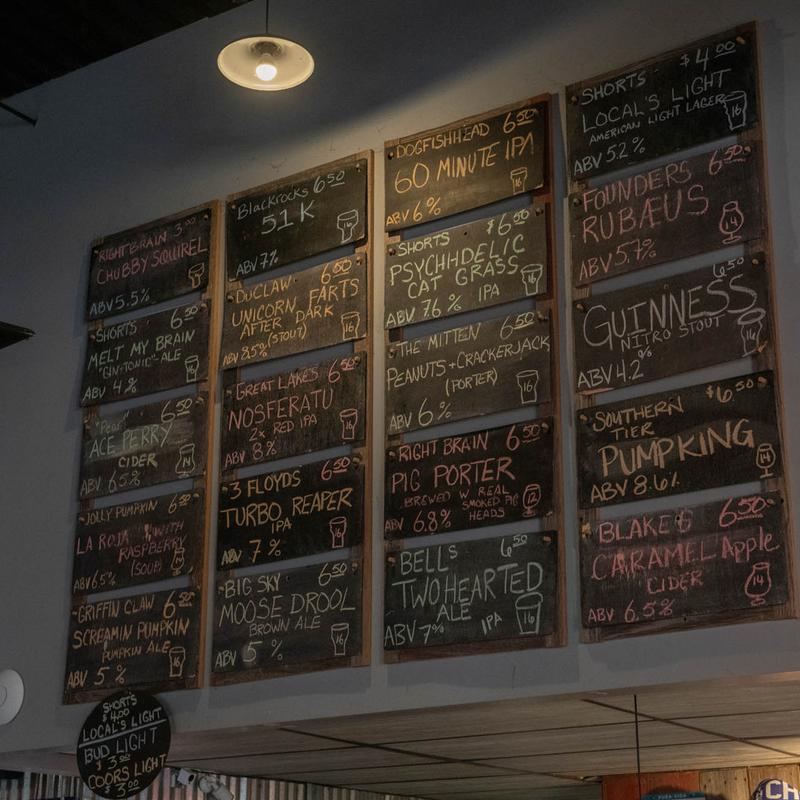 RIGHT BRAIN 3.00
CHUBBY SQUIREL
ABV 5.5%
SHORTS 6.50
MELT MY BRAIN
"GIN-TONIC" ALE
ABV 4%
16
"Pear" 6.50
ACE PERRY
CIDER
ABV 6.5%
14
JOLLY PUMPKIN 6.50
LA ROJA WITH
RASPBERRY
(SOUR)
ABV 6.5%
GRIFFIN CLAW 6.50
SCREAMIN PUMPKIN
PUMPKIN ALE
ABV 5%
16
Blackrocks 6.50
51 K
ABV 7%
16
DUCLAW 6.50
UNICORN FARTS
AFTER DARK
(STOUT)
ABV 8.5%
16
GREAT LAKES 6.50
NOSFERATU
2x RED IPA
ABV 8%
3 FLOYDS 6.50
TURBO REAPER
IPA
ABV 7%
BIG SKY 6.50
MOOSE DROOL
BROWN ALE
ABV 5%
16
DOGFISHHEAD 6.50
60 MINUTE IPA
ABV 6%
16
SHORTS $6.50
PSYCHHDELIC
CAT GRASS
ABV 7.6% IPA
16
THE MITTEN 6.50
PEANUTS+CRACKERJACK
(PORTER)
ABV 6%
16
RIGHT BRAIN 6.50
PIG PORTER
BREWED W REAL
SMOKED PIG
HEADS
ABV 6.8%
12
BELLS 6.50
TWO HEARTED
ALE
ABV 7% IPA
16
SHORTS $4.00
LOCAL'S LIGHT
AMERICAN LIGHT LAGER
ABV 5.2%
16
FOUNDERS 6.50
RUBÆUS
ABV 5.7%
14
6.50
GUINNESS
NITRO STOUT
ABV 4.2%
16
SOUTHERN $6.50
TIER
PUMPKING
ABV 8.6%
14
BLAKE'S 6.50
CARAMEL Apple
CIDER
ABV 6.5%
14
SHORTS
$4.00
LOCAL'S LIGHT
BUD LIGHT
$3.00
COORS LIGHT
$3.00
CH